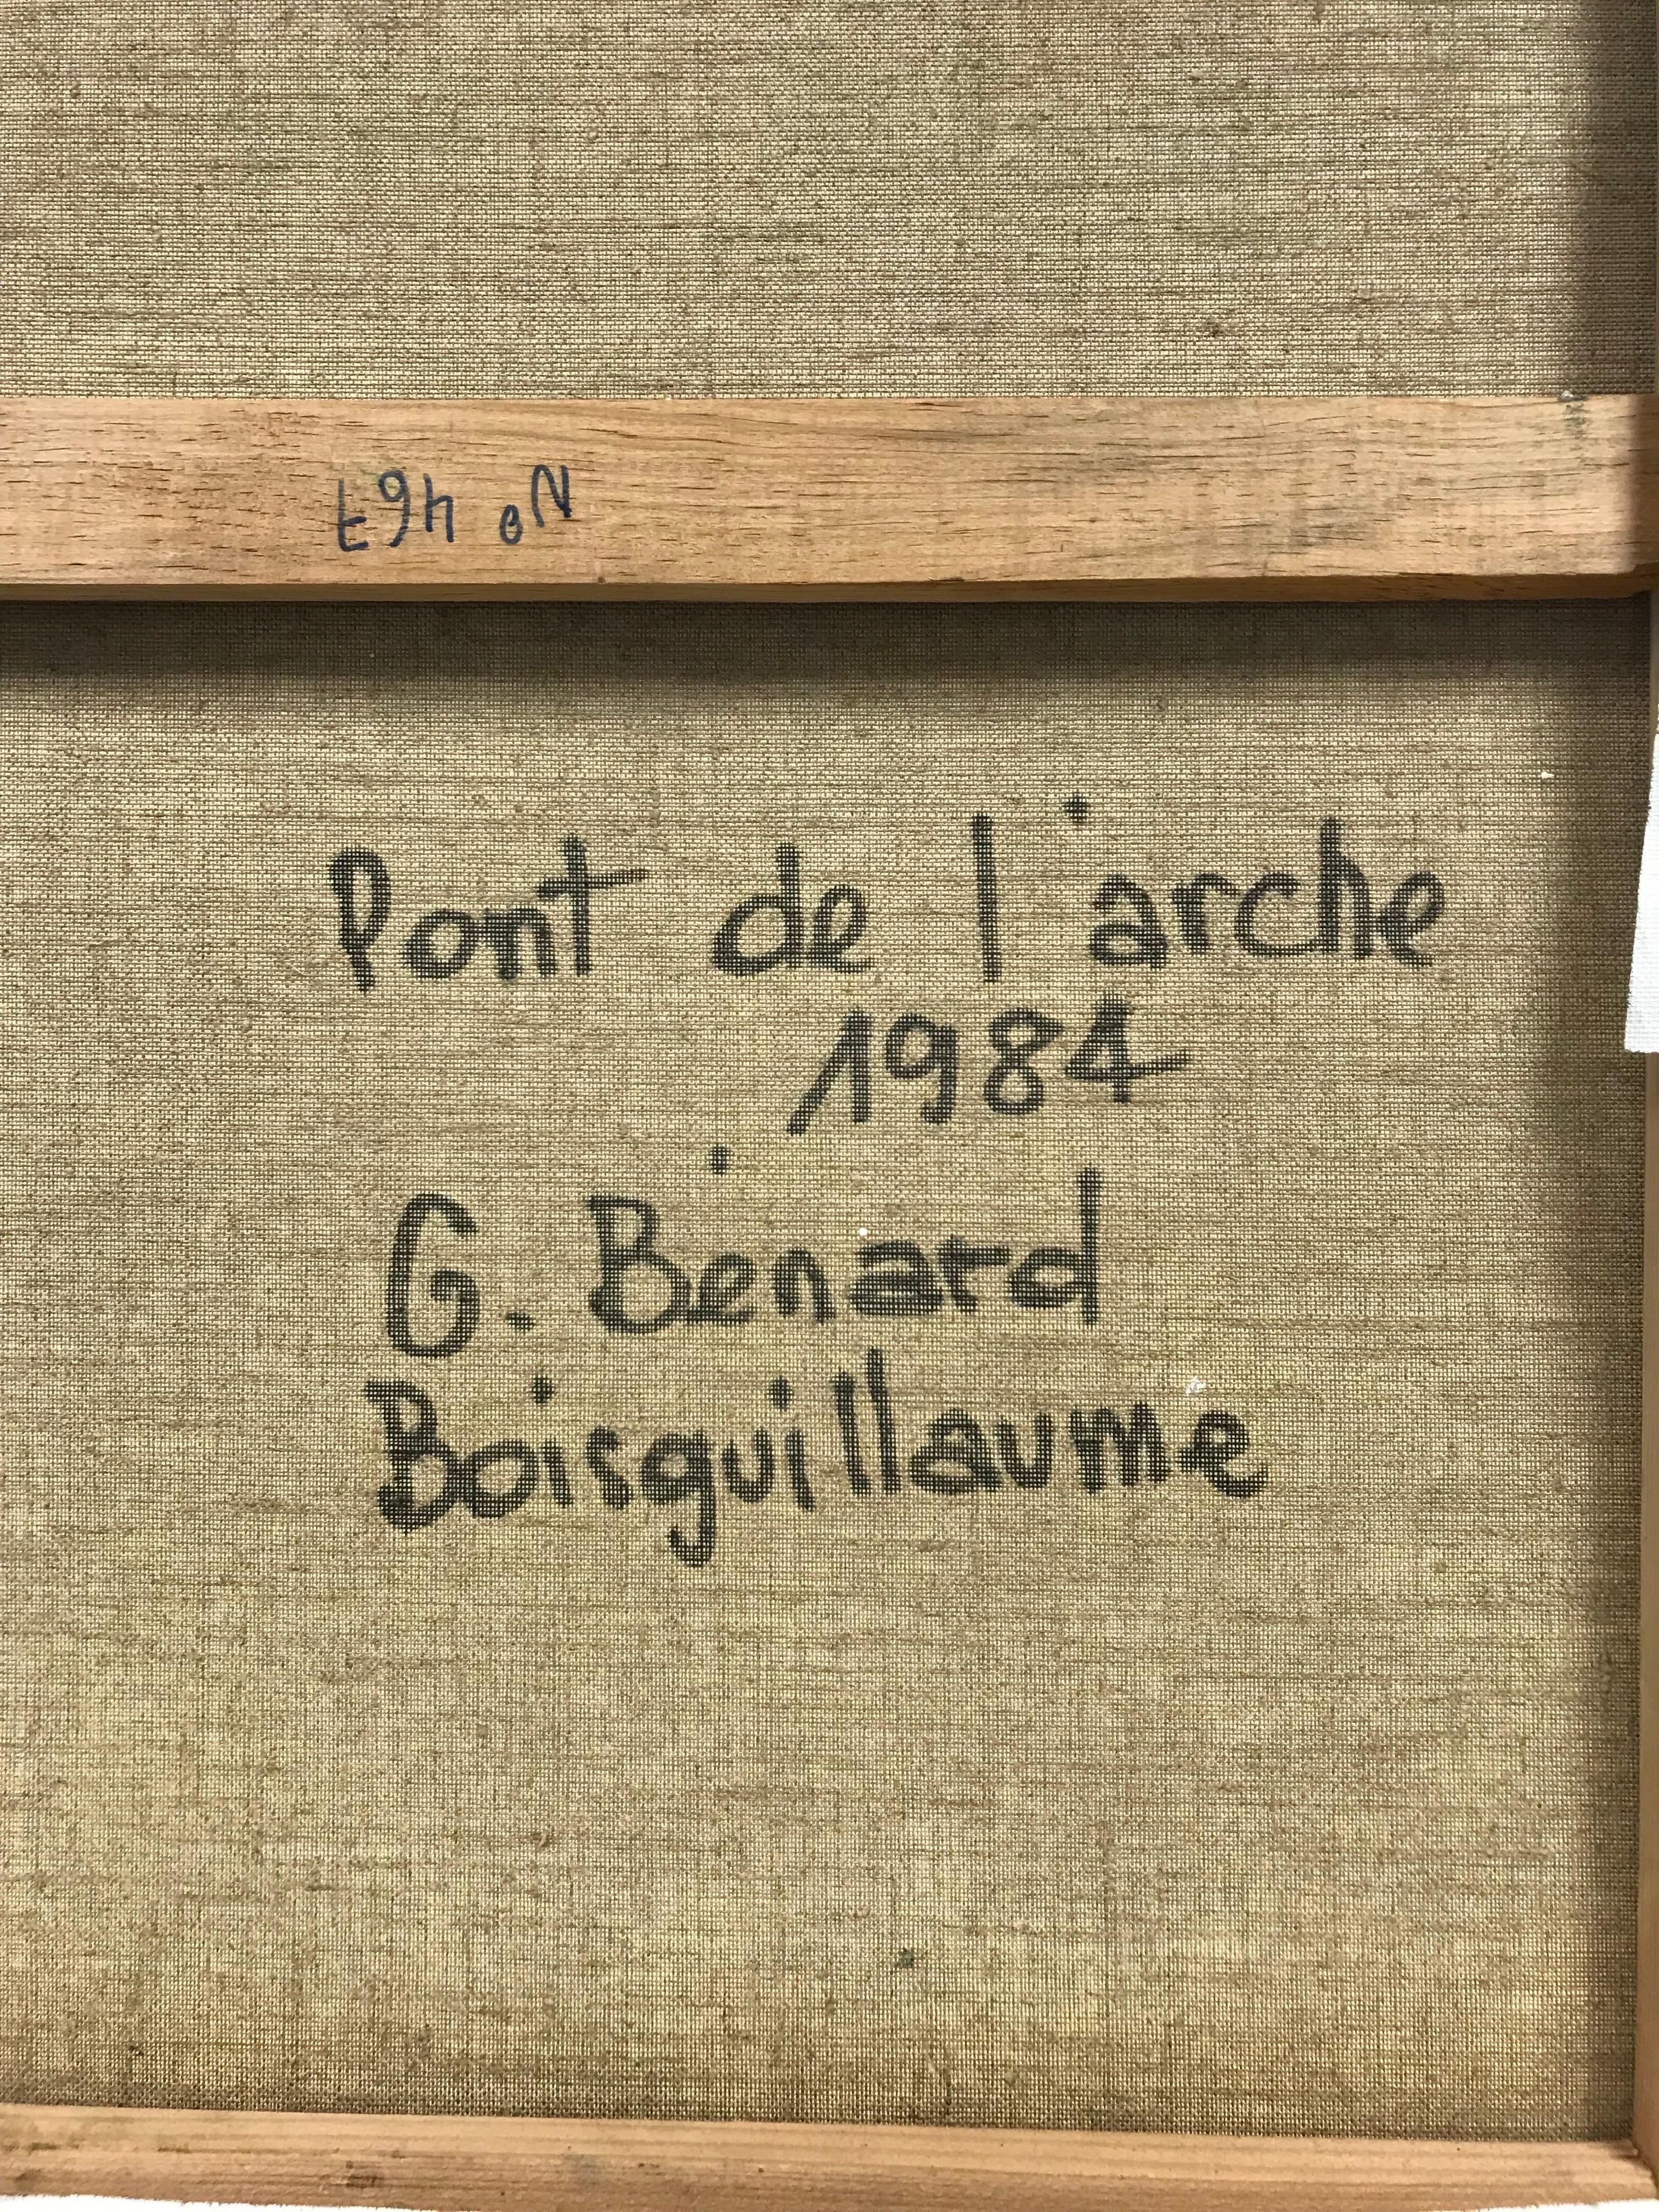 N° 467
Pont de l'arche
1984
G. Bénard
Boisguillaume